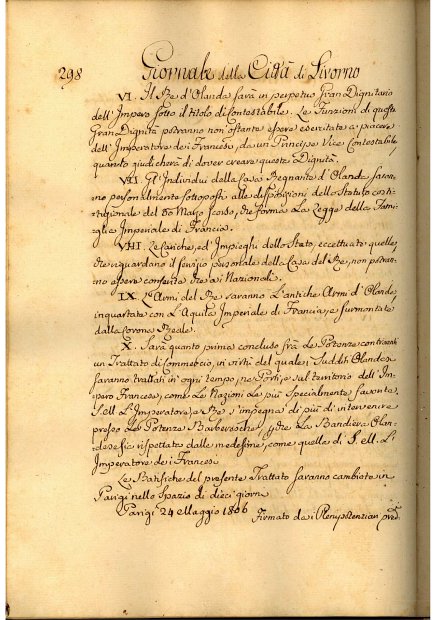 298 Giornale della Città di Livorno
VI. Il Re d'Olanda sarà in perpetuo Gran Dignitario
dell'Impero sotto il titolo di Contestabile. Le Funzioni di questa
Gran Dignità potranno non ostante essere esercitate a piacere
dell'Imperatore dei Francesi, da un Principe Vice Contestabile,
quanto giudicherà di dover creare questa Dignità.
VII. Gl'Individui della Casa Regnante d'Olanda saran-
no personalmente sottoposti alle disposizioni dello Statuto costi-
tuzionale del 30 Marzo scorso, che forma La Legge della Fami-
glia Imperiale di Francia.
VIII. Le Cariche, ed Impieghi dello Stato, eccettuate quelle
che riguardano il servizio personale della Casa del Re, non potran-
no essere conferite che a i Nazionali.
IX. L'Armi del Re saranno L'antiche Armi d'Olanda,
inquartate con L'Aquila Imperiale di Francia, e surmontate
dalla Corona Reale.
X. Sarà quanto prima concluso frà Le Potenze contraenti
un Trattato di Commercio, in virtù del quale i Sudditi Olandesi
saranno trattati in ogni tempo, ne Porti, e sul territorio dell'Im-
pero Francese, come Le Nazioni Le più specialmente favorite.
L'Imperatore, e Re s'impegna di più di intervenire
presso Le Potenze Barbaresche, che La Bandiera Olan-
dese sia rispettata dalle medesime, come quella di L'
Imperatore dei Francesi.
Le Ratifiche del presente Trattato saranno cambiate in
Parigi nello Spazio di dieci giorni
Parigi 24 Maggio 1806 Firmato da i Plenipotenziari